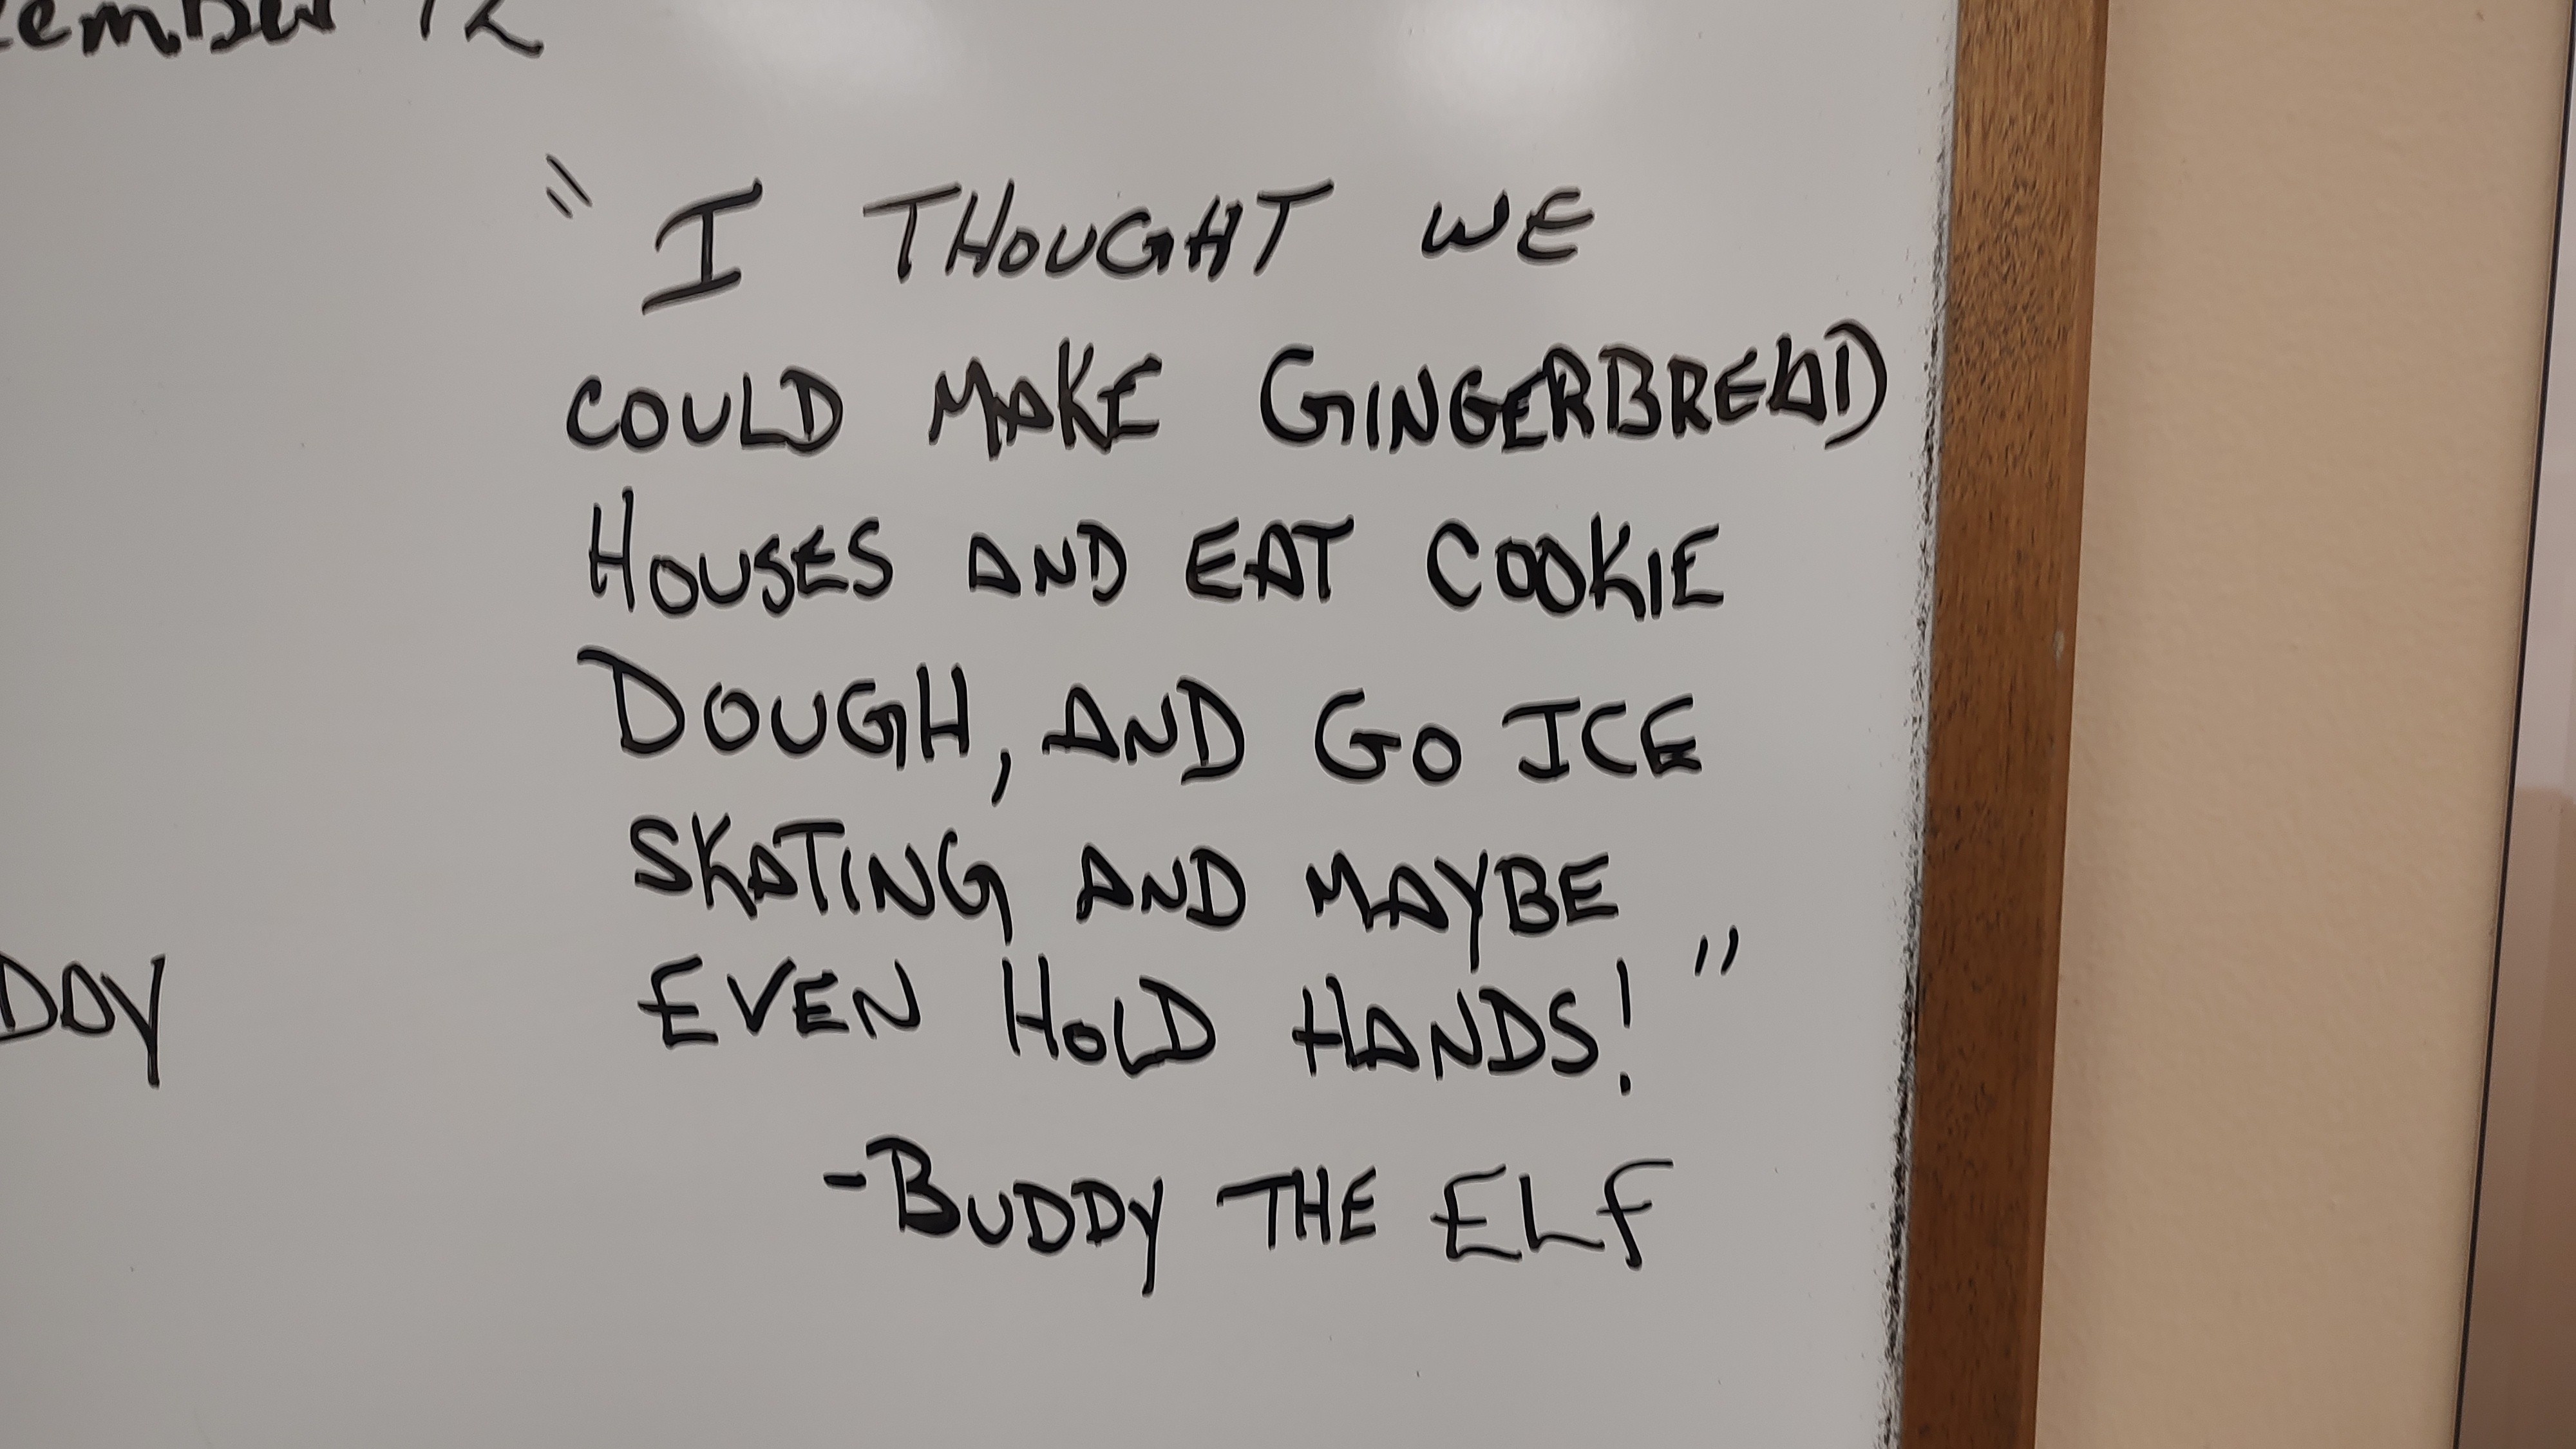 ember 12
"I THOUGHT WE
COULD MAKE GINGERBREAD
HOUSES AND EAT COOKIE
DOUGH, AND GO ICE
SKATING AND MAYBE
EVEN HOLD HANDS!"
DAY
-BUDDY THE ELF